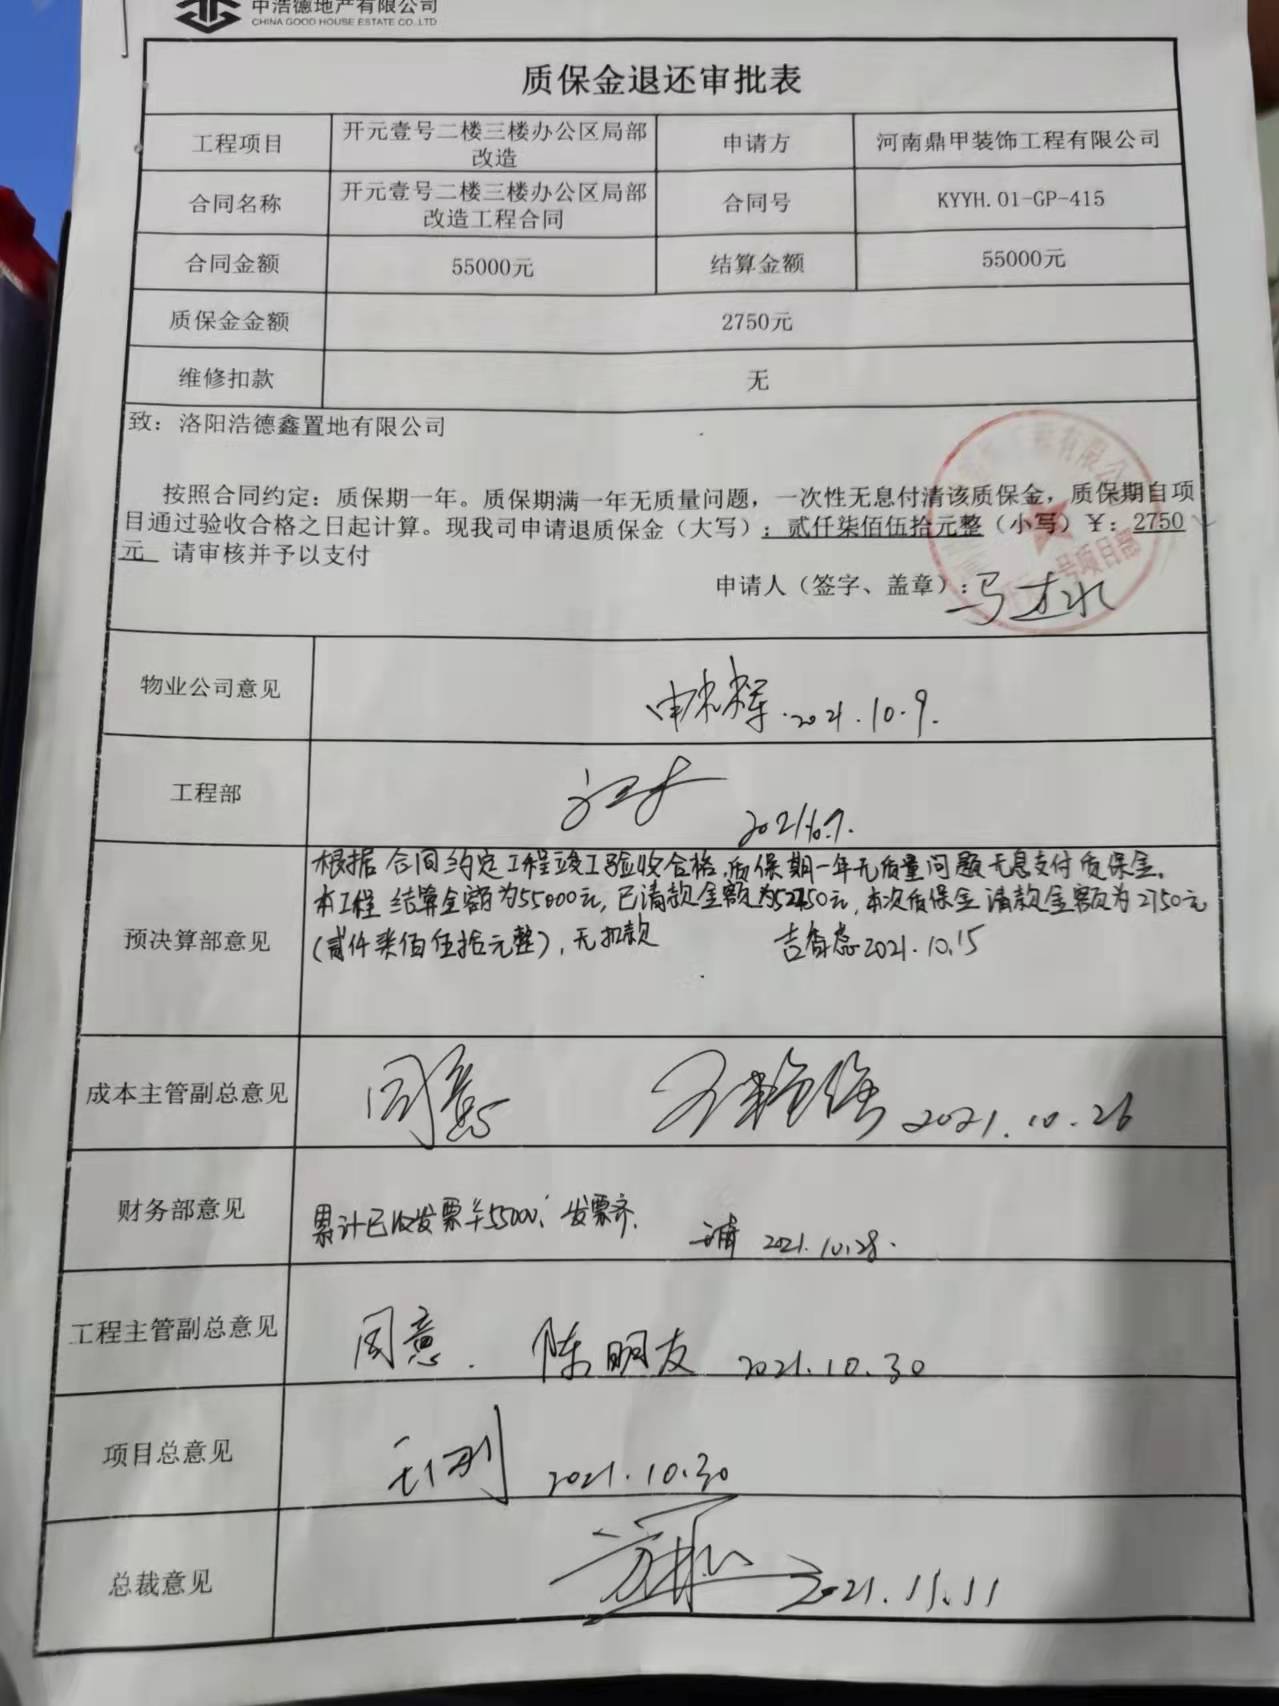 中浩德地产有限公司
CHINA GOOD HOUSE ESTATE CO.,LTD
质保金退还审批表
工程项目
开元壹号二楼三楼办公区局部
改造
申请方
河南鼎甲装饰工程有限公司
合同名称
开元壹号二楼三楼办公区局部
改造工程合同
合同号
KYYH.01-GP-415
合同金额
55000元
结算金额
55000元
质保金金额
2750元
维修扣款
无
致：洛阳浩德鑫置地有限公司
按照合同约定：质保期一年。质保期满一年无质量问题，一次性无息付清该质保金，质保期自项
目通过验收合格之日起计算。现我司申请退质保金（大写）：贰仟柒佰伍拾元整（小写）￥：2750
元 请审核并予以支付
申请人（签字、盖章）：
工程有限公司
号项目部
物业公司意见
2021.10.9.
工程部
预决算部意见
根据合同约定工程竣工验收合格，质保期一年无质量问题无息支付质保金。
本工程结算金额为55000元，已请款金额为52250元，本次质保金请款金额为2750元
（贰仟柒佰伍拾元整），无扣款
2021.10.15
成本主管副总意见
同意
2021.10.26
财务部意见
累计已收发票￥55000，发票齐.
2021.10.28.
工程主管副总意见
同意. 陈明友 2021.10.30
项目总意见
2021.10.30
总裁意见
2021.11.11